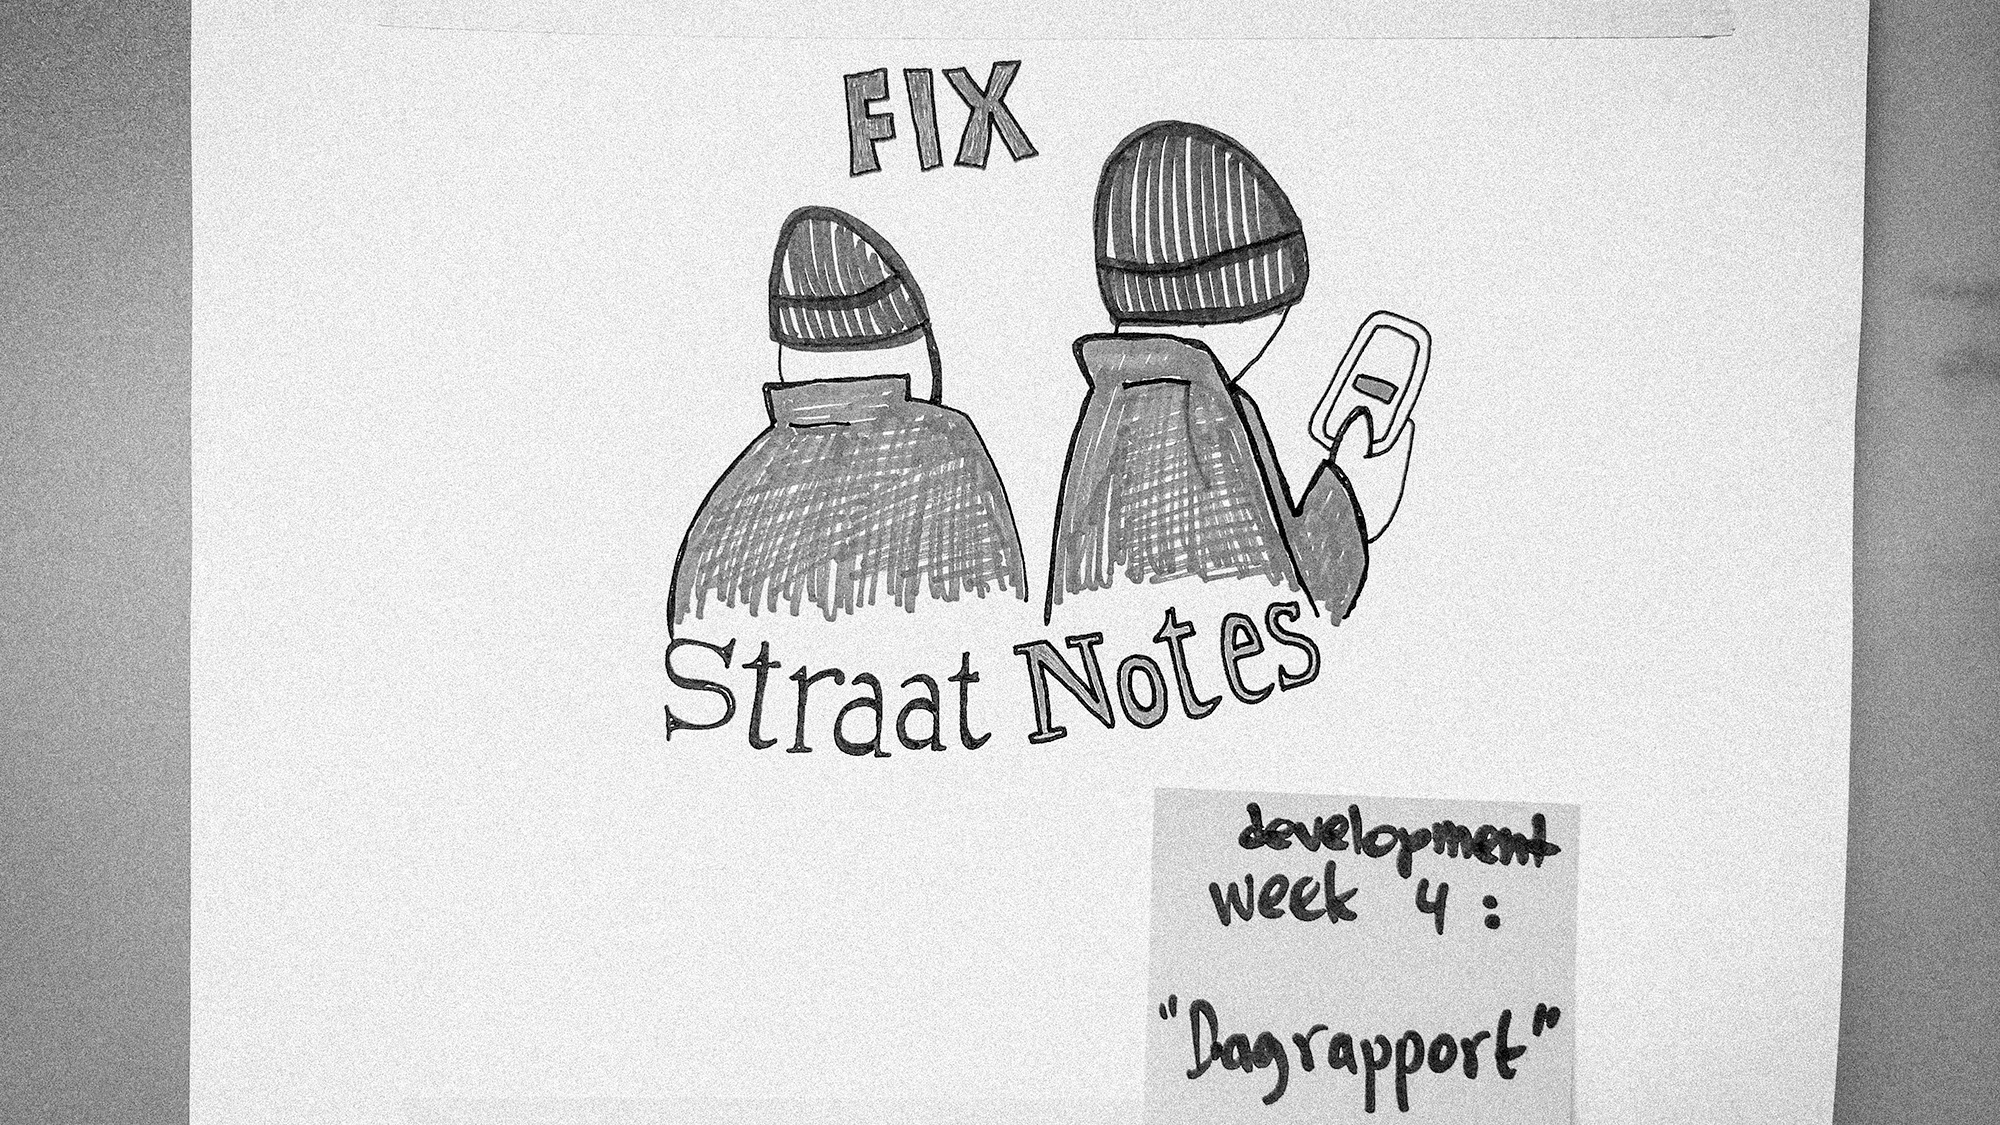 FIX
Straat Notes
development
week 4:
"Dagrapport"